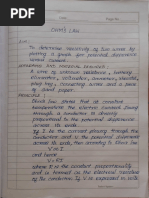 Ohm's Law
AIM
To determine resistivity of two wires by
plotting a graph for potential difference
versus current.
APPARATUS AND MATERIAL REQUIRED :
A wire of unknown resistance, battery
voltmeter, milliammeter, rheostat, plug
key, connecting wires and piece of
sand paper
PRINCIPLE :
Ohm's law states that at constant
temperature the electric current flowing
through a conductor is directly
proportional to the potential difference
across its ends.
If I is the current flowing through the
conductor and V the potential difference
across its ends, then according to Ohm's law
V ∝ I
and hence
V = RI
where R is the constant of proportionality
and is termed as the electrical resistance
of the conductor. If V is expressed in volts